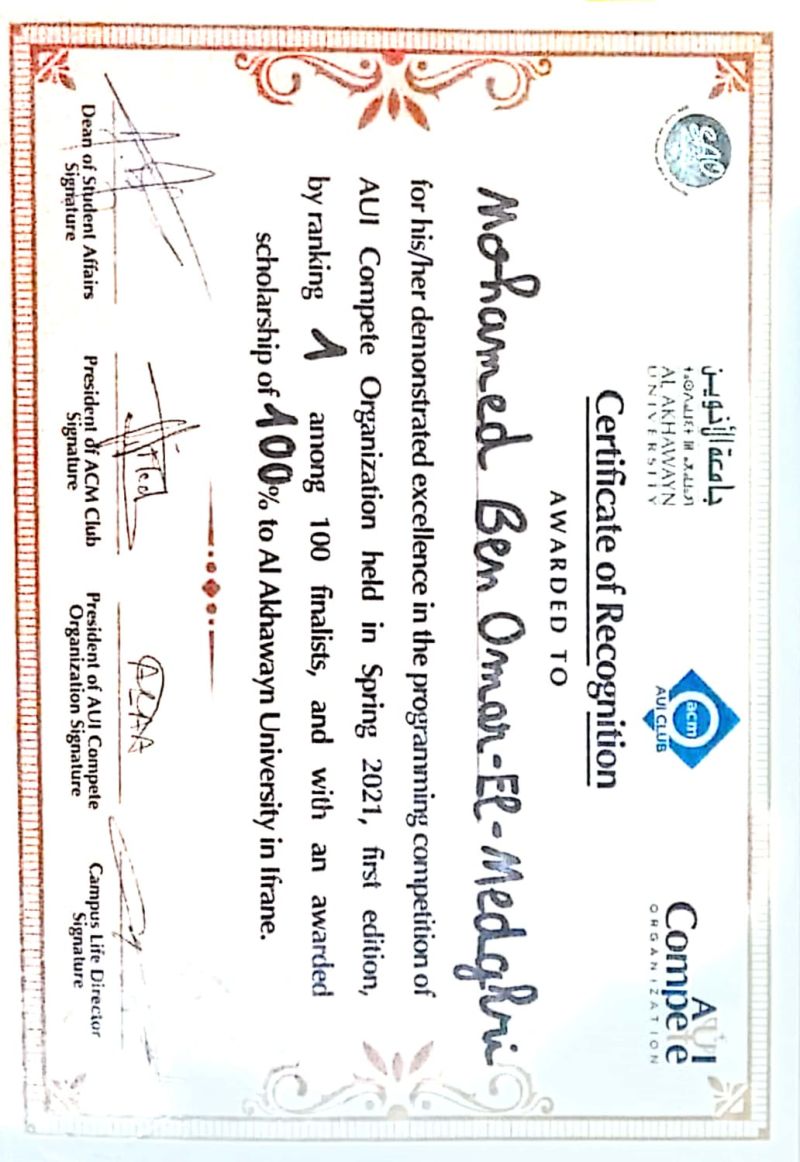 SAO
جامعة الأخوين
AL AKHAWAYN
UNIVERSITY
acm
AUI CLUB
AUI
Compete
ORGANIZATION
Certificate of Recognition
AWARDED TO
Mohamed Ben Omar-El-Medghri
for his/her demonstrated excellence in the programming competition of
AUI Compete Organization held in Spring 2021, first edition,
by ranking 1 among 100 finalists, and with an awarded
scholarship of 100% to Al Akhawayn University in Ifrane.
ALAA
Dean of Student Affairs
Signature
President of ACM Club
Signature
President of AUI Compete
Organization Signature
Campus Life Director
Signature